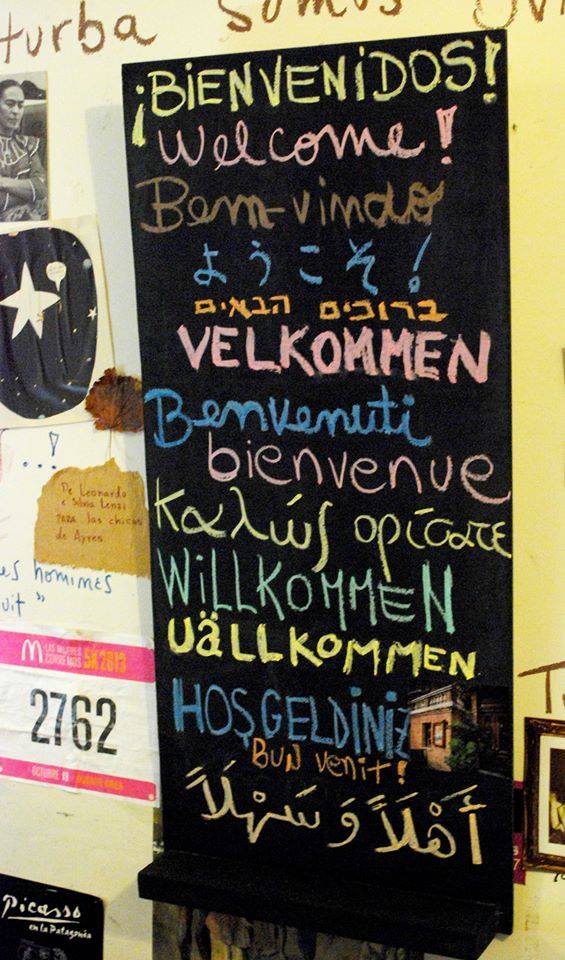 turba somos
¡BIENVENIDOS!
Welcome!
Bem-vindo
ようこそ!
ברוכים הבאים
VELKOMMEN
Benvenuti
bienvenue
Καλώς ορίσατε
WiLLKOMMEN
UäLLKOMMEN
HOŞGELDİNİZ
BUN venit!
أَهْلَاً وَ سَهْلَاً
...!
De Leonardo
e Silvia Lenzi
PARA las chicas
de Ayres
es homines
uit"
LAS MUJERES
CORREMOS 5K 2013
2762
OCTUBRE 19 BUENOS AIRES
Picasso
en la Patagonia